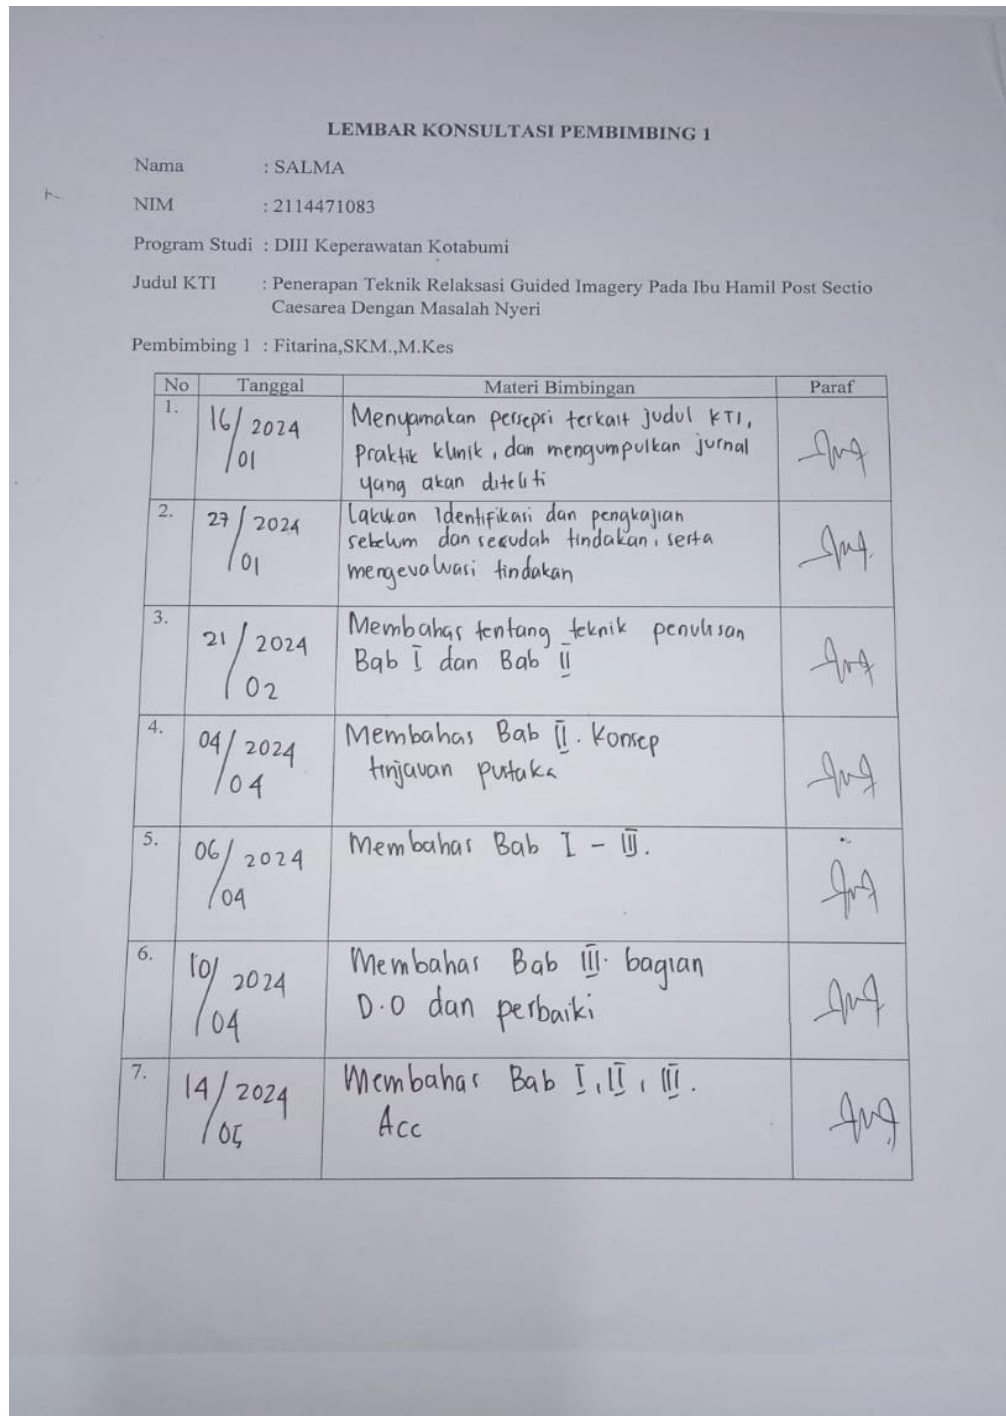 LEMBAR KONSULTASI PEMBIMBING 1
Nama : SALMA
NIM : 2114471083
Program Studi : DIII Keperawatan Kotabumi
Judul KTI : Penerapan Teknik Relaksasi Guided Imagery Pada Ibu Hamil Post Sectio
Caesarea Dengan Masalah Nyeri
Pembimbing 1 : Fitarina,SKM.,M.Kes
No Tanggal Materi Bimbingan Paraf
1. 16/01/2024 Menyamakan persepsi terkait judul KTI,
praktik klinik, dan mengumpulkan jurnal
yang akan diteliti
2. 27/01/2024 Lakukan Identifikasi dan pengkajian
sebelum dan sesudah tindakan, serta
mengevaluasi tindakan
3. 21/02/2024 Membahas tentang teknik penulisan
Bab I dan Bab II
4. 04/04/2024 Membahas Bab II. Konsep
tinjauan pustaka
5. 06/04/2024 Membahas Bab I - III.
6. 10/04/2024 Membahas Bab III. bagian
D.O dan perbaiki
7. 14/05/2024 Membahas Bab I, II, III.
Acc